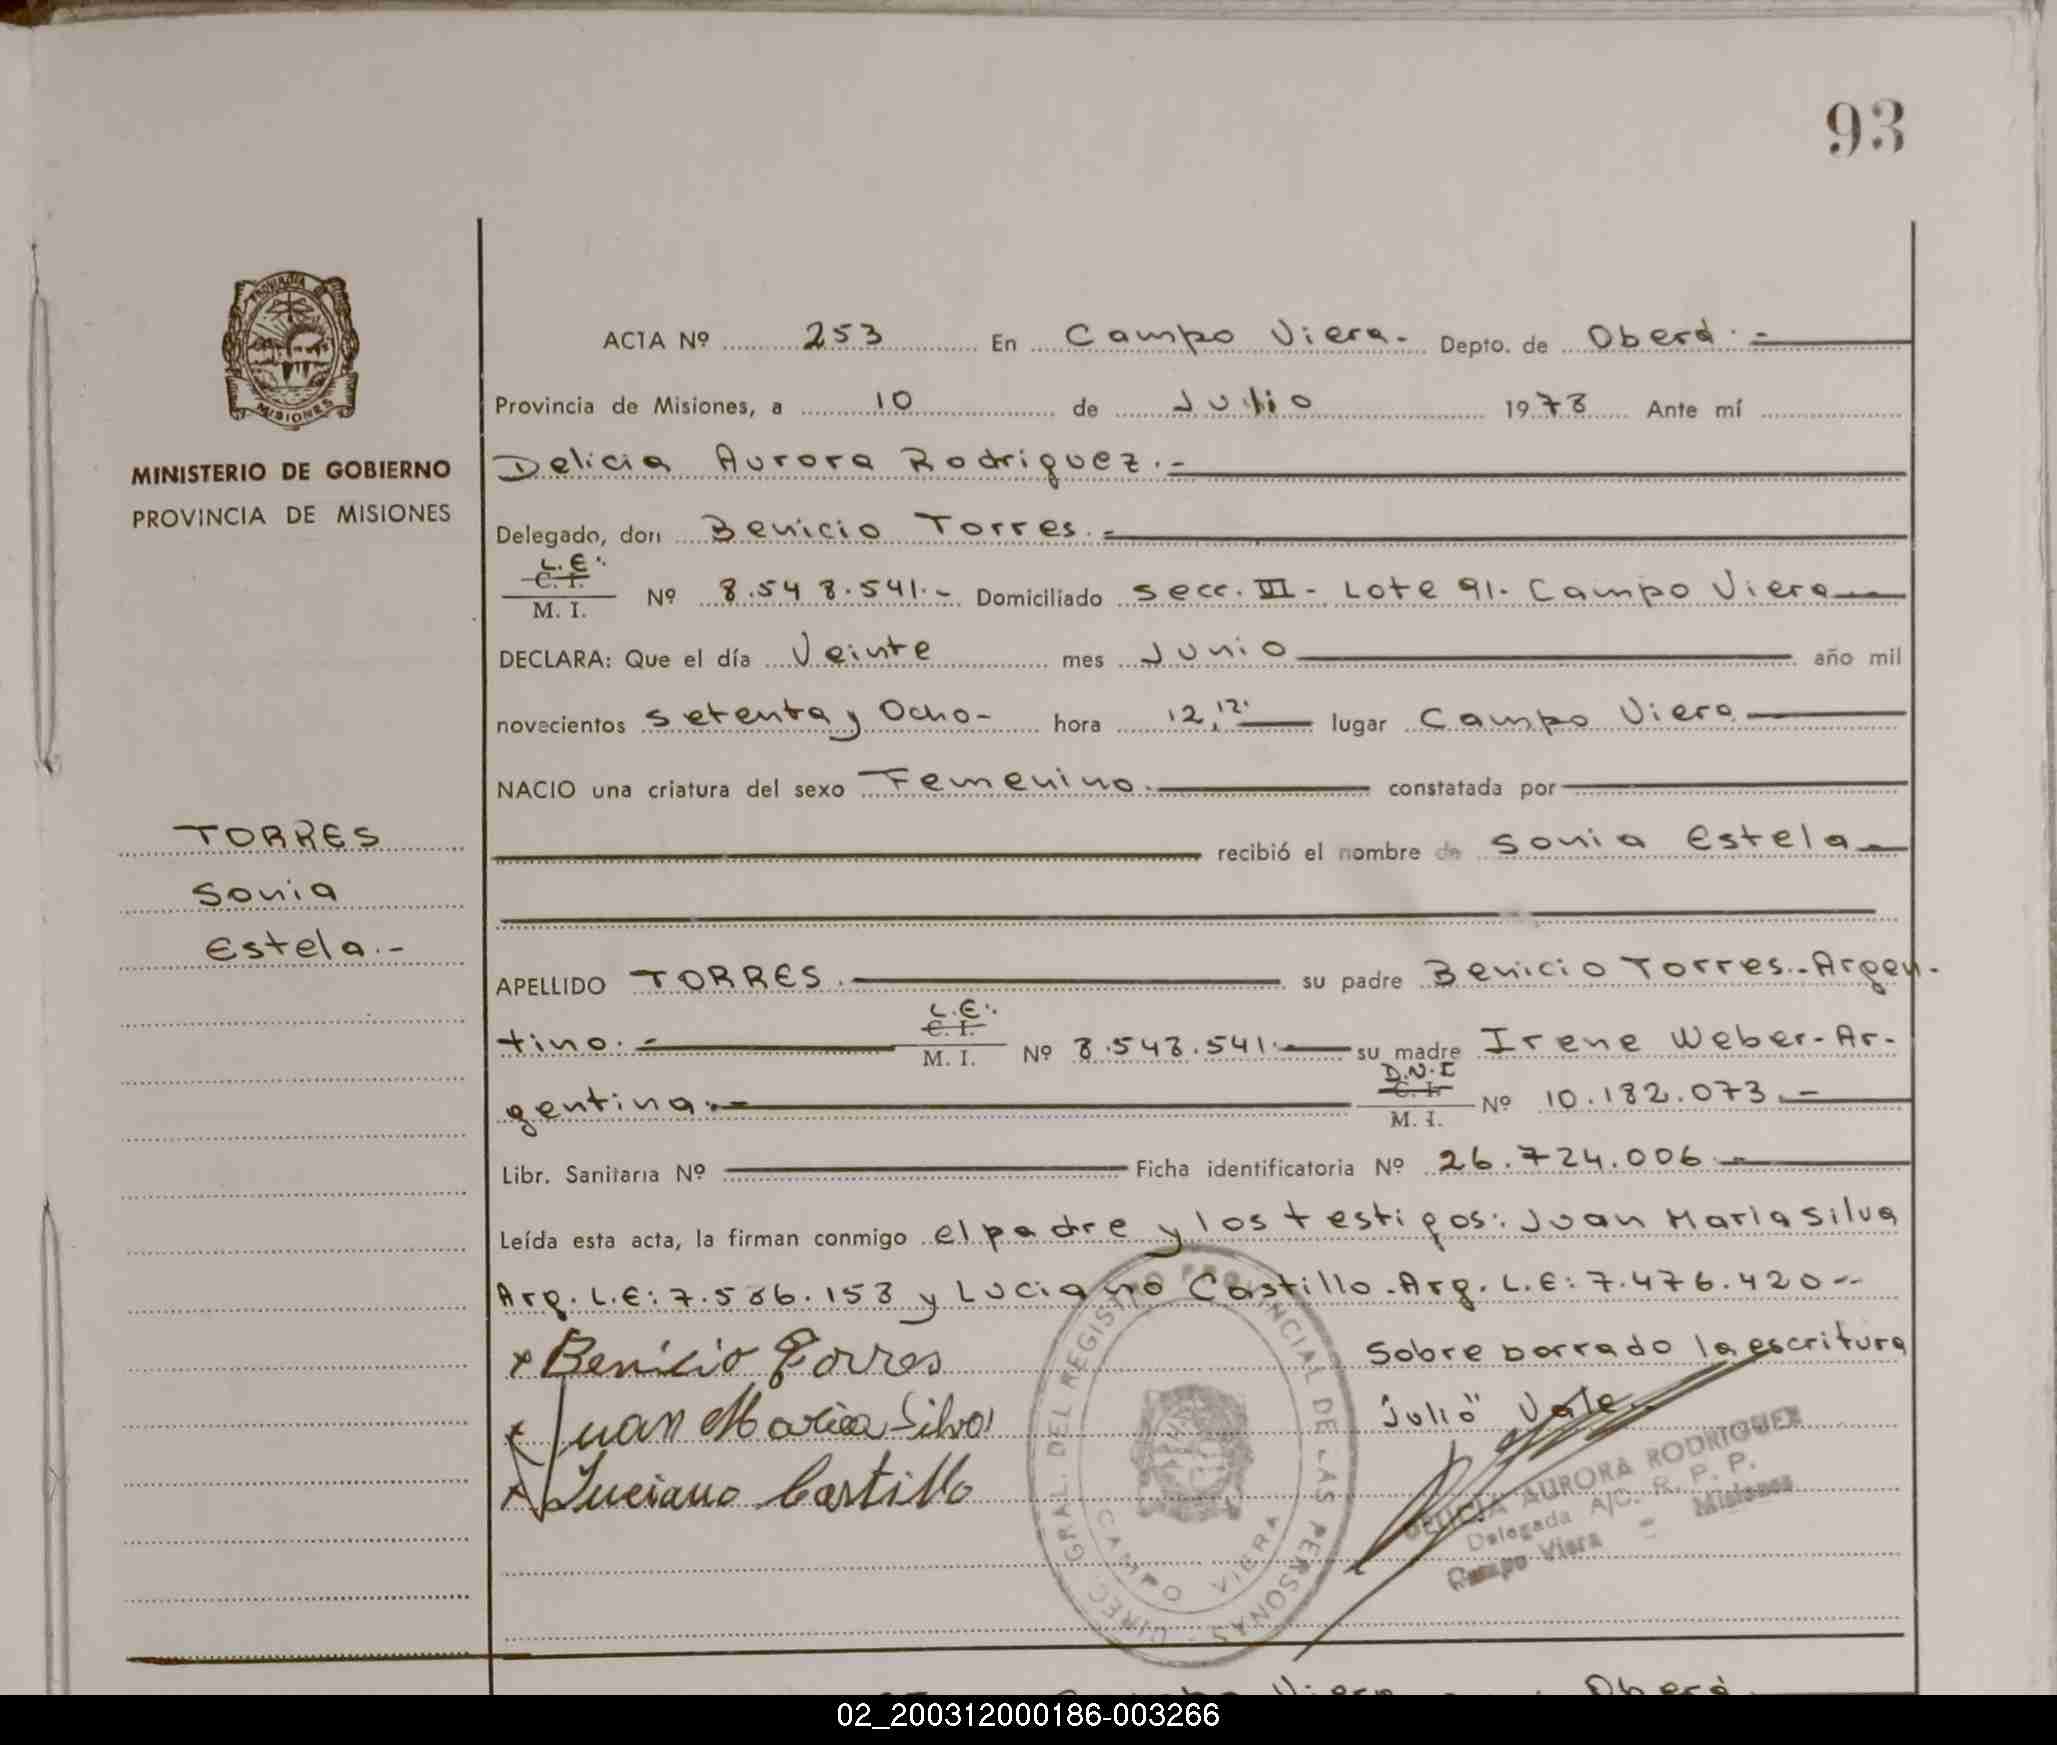 93
PROVINCIA DE
MISIONES
MINISTERIO DE GOBIERNO
PROVINCIA DE MISIONES
TORRES
Sonia
Estela.-
ACTA Nº 253 En Campo Viera.- Depto. de Oberá.-
Provincia de Misiones, a 10 de Julio 1978 Ante mí
Delicia Aurora Rodriguez.-
Delegado, don Benicio Torres.-
L.E.
C. I.
M. I. Nº 8.548.541.- Domiciliado Secc. III - Lote 91. Campo Viera
DECLARA: Que el día Veinte mes Junio año mil
novecientos setenta y Ocho- hora 12,12. lugar Campo Viera
NACIO una criatura del sexo Femenino. constatada por
recibió el nombre de Sonia Estela
APELLIDO TORRES. su padre Benicio Torres.-Argen-
tino.- L.E. C. I. M. I. Nº 8.548.541.- su madre Irene Weber-Ar-
gentina.- D.N.I C. I. M. I. Nº 10.182.073.-
Libr. Sanitaria Nº Ficha identificatoria Nº 26.724.006.-
Leída esta acta, la firman conmigo el padre y los testigos: Juan Maria Silva
Arg. L.E: 7.586.158 y Luciano Castillo.Arg. L.E: 7.476.420--
x Benicio Torres
Sobre borrado la escritura
x Juan Maria Silva
"Julio" Vale.
x Luciano Castillo
DIREC. GRAL. DEL REGISTRO PROVINCIAL DE LAS PERSONAS
CAMPO VIERA
DELICIA AURORA RODRIGUEZ
Delegada A/C. R. P. P.
Campo Viera - Misiones
Campo Viera Oberá.
02_200312000186-003266